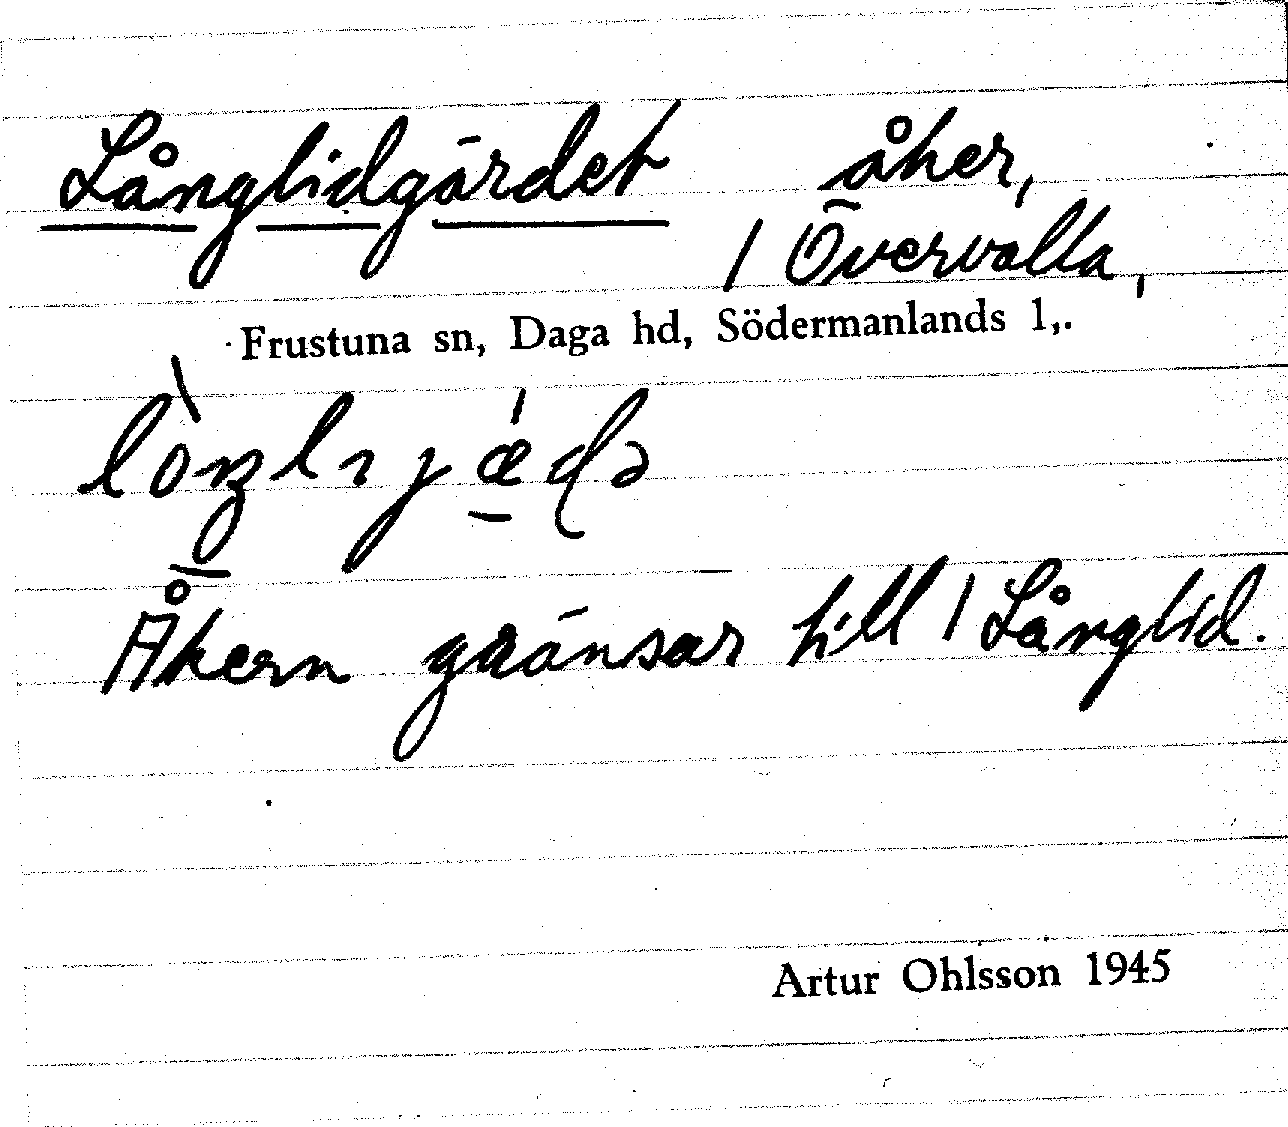 Långlidgärdet åker,
/ Övervalla,
Frustuna sn, Daga hd, Södermanlands l,.
Åkern gränsar till / Långlid.
Artur Ohlsson 1945